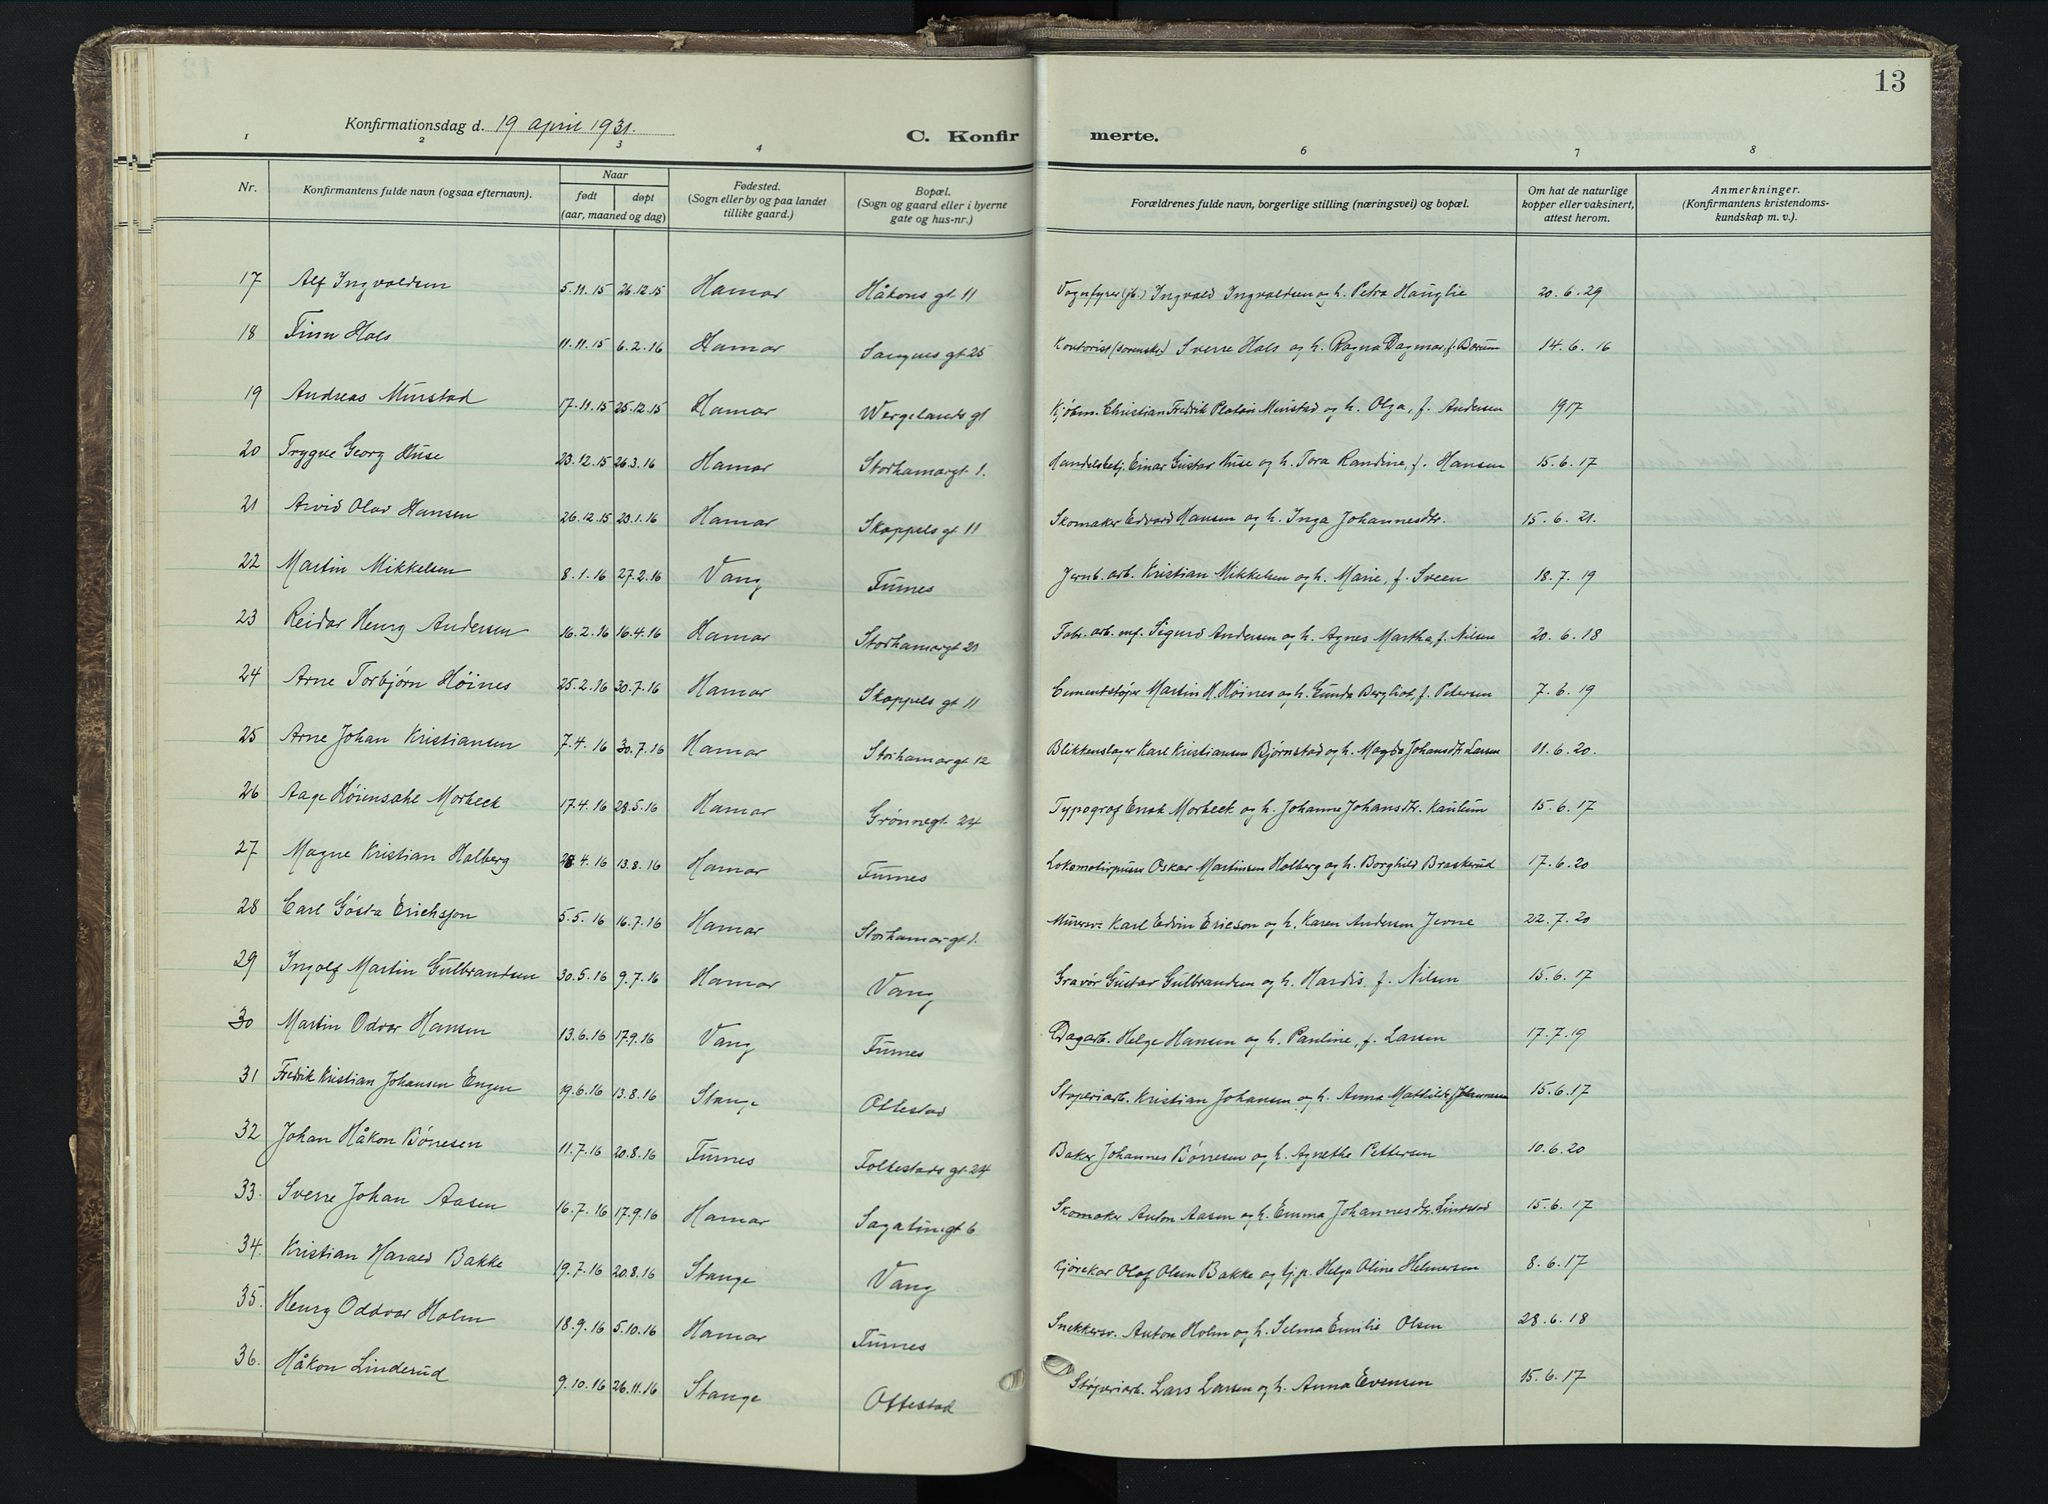 13
Konfirmationsdag d. 19 april 1931.
C. Konfirmerte.
1 2 3 4 6 7 8
Nr. | Konfirmantens fulde navn (ogsaa efternavn). | Naar født døpt (aar, maaned og dag) | Fødested. (Sogn eller by og paa landet tillike gaard.) | Bopæl. (Sogn og gaard eller i byerne gate og hus-nr.) | Forældrenes fulde navn, borgerlige stilling (næringsvei) og bopæl. | Om hat de naturlige kopper eller vaksinert, attest herom. | Anmerkninger. (Konfirmantens kristendoms-kundskap m. v.).
17 Alf Ingvaldsen 5.11.15 26.12.15 Hamar Håkons gt 11 Vognfyrer (jb.) Ingvald Ingvaldsen og h. Petra Hauglie 20.6.29
18 Finn Hals 11.11.15 6.2.16 Hamar gt 25 Kontorist (sorenskr.) Sverre Hals og h. Ragna Dagmar, f. Borum 14.6.16
19 Andreas Minstad 17.11.15 25.12.15 Hamar Wergelands gt Kjøbm. Christian Fredrik Platou Minstad og h. Olga, f. Andersen 1917
20 Trygve Georg Huse 23.12.15 26.3.16 Hamar Storhamargt 1. Handelsbetj. Einar Gustav Huse og h. Tora Randine, f. Hansen 15.6.17
21 Arvid Olav Hansen 26.12.15 23.1.16 Hamar Skappels gt 11 Skomaker Edvard Hansen og h. Inga Johannesdtr. 15.6.21.
22 Martin Mikkelsen 8.1.16 27.2.16 Vang Furnes Jernb. arb. Kristian Mikkelsen og h. Marie, f. Sveen 18.7.19
23 Reidar Henry Andersen 16.2.16 16.4.16 Hamar Storhamargt 21 Fabr. arb. Sigurd Andersen og h. Agnes Martha, f. Nilsen 20.6.18
24 Arne Torbjørn Høines 25.2.16 30.7.16 Hamar Skappels gt 11 Cementstøper Martin H. Høines og h. Gunda Bergliot, f. Petersen 7.6.19
25 Arne Johan Kristiansen 7.4.16 30.7.16 Hamar Storhamargt 12 Blikkenslager Karl Kristiansen Bjørnstad og h. Magda Johansdtr Larsen 11.6.20.
26 Aage Høiensahl Morbeck 17.4.16 28.5.16 Hamar Grønnegt. 24 Typograf Enok Morbeck og h. Johanne Johansdtr. Kaulum 15.6.17
27 Magne Kristian Holberg 28.4.16 13.8.16 Hamar Furnes Lokomotivpusser Oskar Martinsen Holberg og h. Borghild Braskerud 17.6.20
28 Carl Gösta Erichsson 5.5.16 16.7.16 Hamar Storhamargt 1. Murersv. Karl Edvin Ericson og h. Karen Andersen Jerne 22.7.20
29 Ingolf Martin Gulbrandsen 30.5.16 9.7.16 Hamar Vang Gravør Gustav Gulbrandsen og h. Hardis, f. Nilsen 15.6.17
30 Martin Odvar Hansen 13.6.16 17.9.16 Vang Furnes Dagarb. Helge Hansen og h. Pauline, f. Larsen 17.7.19
31 Fredrik Kristian Johansen Engen 19.6.16 13.8.16 Stange Ottestad Støperiarb. Kristian Johansen og h. Anna Mathilde Johannessen 15.6.17
32 Johan Håkon Børresen 11.7.16 20.8.16 Furnes Folkestads gt 24 Baker Johannes Børresen og h. Agnethe Pettersen 10.6.20
33. Sverre Johan Aasen 16.7.16 17.9.16 Hamar Sagatungt 6 Skomaker Anton Aasen og h. Emma Johannesdtr. Lindstad 15.6.17
34. Kristian Harald Bakke 19.7.16 20.8.16 Stange Vang Kjørekar Olaf Olsen Bakke og tj.p. Helga Oline Helmersen 8.6.17
35. Henry Oddvar Holm 18.9.16 5.10.16 Hamar Furnes Snekkersv. Anton Holm og h. Selma Emilie Olsen 28.6.18
36. Håkon Linderud 9.10.16 26.11.16 Stange Ottestad Støperiarb. Lars Larsen og h. Anna Evensen 15.6.17